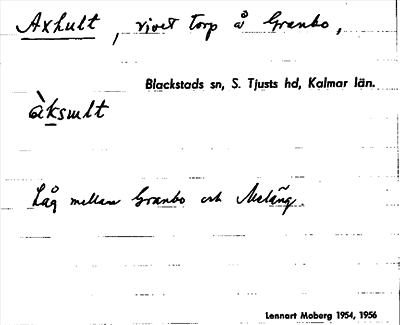 Axhult, rivet torp å Granbo,
Blackstads sn, S. Tjusts hd, Kalmar län.
àksult
Låg mellan Granbo och Meläng.
Lennart Moberg 1954, 1956